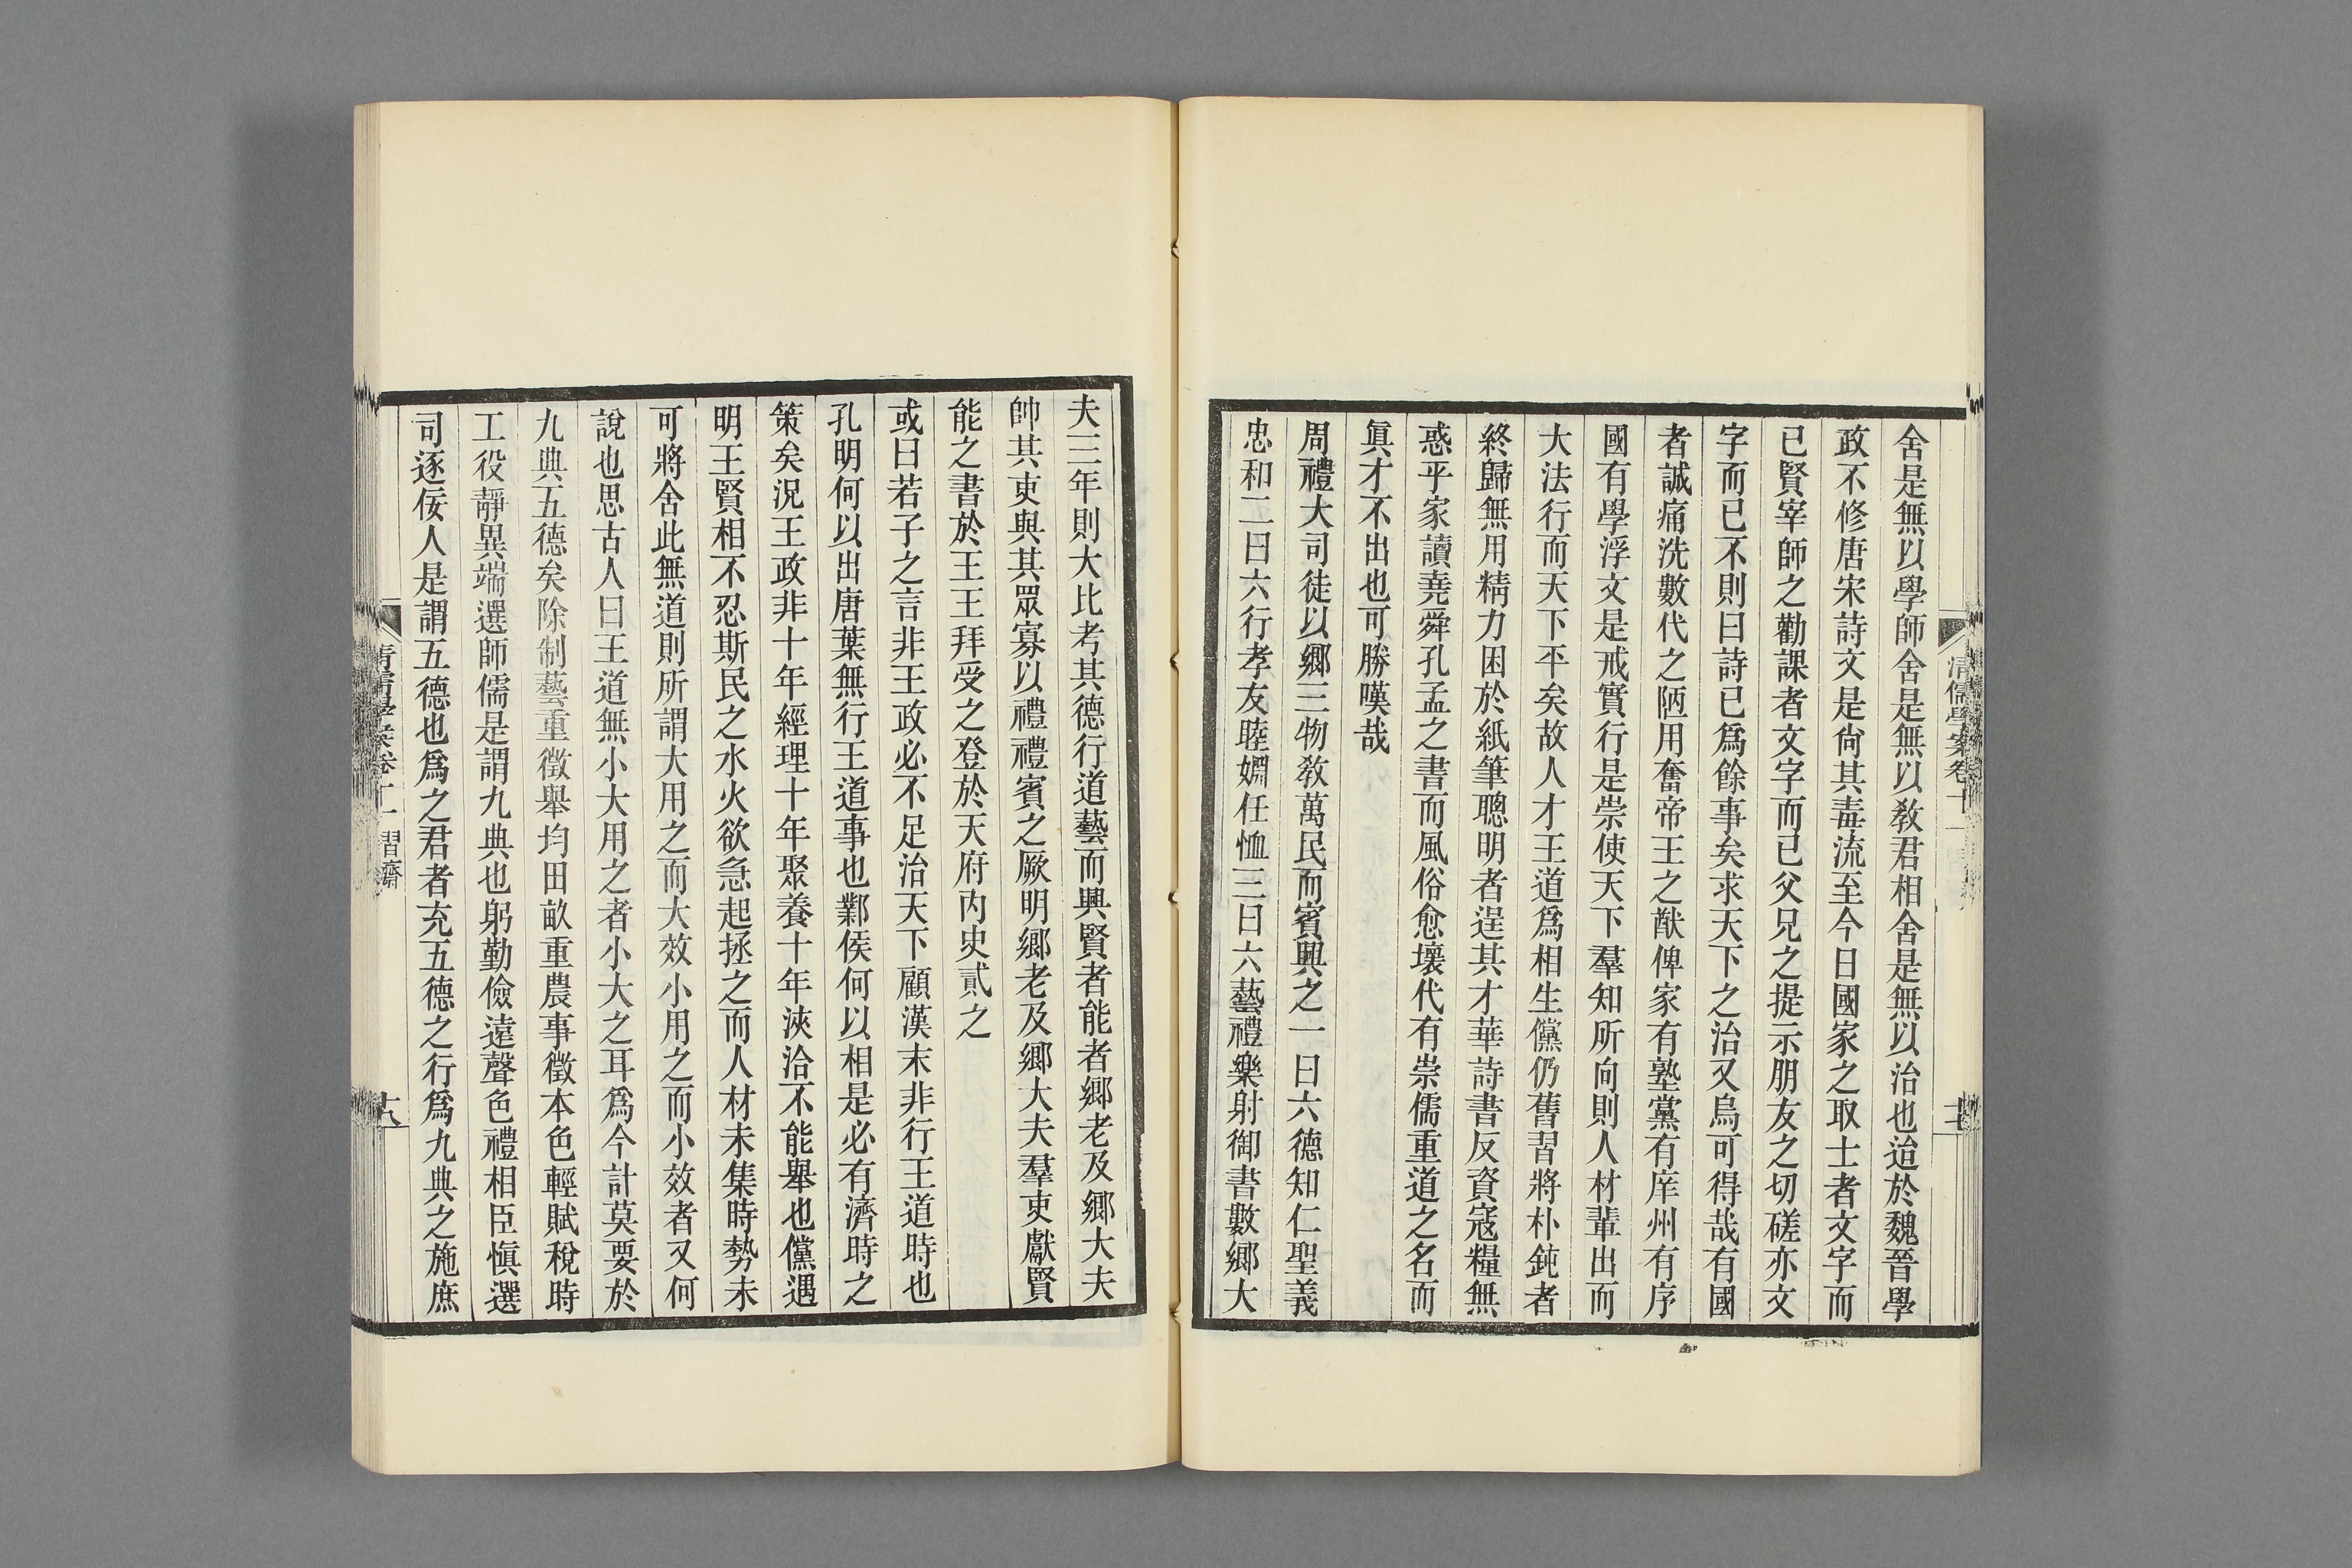 清儒學案卷十一
舍是無以學師舍是無以敎君相舍是無以治也迨於魏晉學
政不修唐宋詩文是尙其毒流至今日國家之取士者文字而
已賢宰師之勸課者文字而已父兄之提示朋友之切磋亦文
字而已不則曰詩已爲餘事矣求天下之治又烏可得哉有國
者誠痛洗數代之陋用奮帝王之猷俾家有塾黨有庠州有序
國有學浮文是戒實行是崇使天下羣知所向則人材輩出而
大法行而天下平矣故人才王道爲相生儻仍舊習將朴鈍者
終歸無用精力困於紙筆聰明者逞其才華詩書反資寇糧無
惑乎家讀堯舜孔孟之書而風俗愈壞代有崇儒重道之名而
眞才不出也可勝嘆哉
周禮大司徒以鄉三物敎萬民而賓興之一曰六德知仁聖義
忠和二曰六行孝友睦婣任恤三曰六藝禮樂射御書數鄉大
夫三年則大比考其德行道藝而興賢者能者鄉老及鄉大夫
帥其吏與其眾寡以禮禮賓之厥明鄉老及鄉大夫羣吏獻賢
能之書於王王拜受之登於天府內史貳之
或曰若子之言非王政必不足治天下顧漢末非行王道時也
孔明何以出唐葉無行王道事也鄴侯何以相是必有濟時之
策矣況王政非十年經理十年聚養十年浹洽不能舉也儻遇
明王賢相不忍斯民之水火欲急起拯之而人材未集時勢未
可將舍此無道則所謂大用之而大效小用之而小效者又何
說也思古人曰王道無小大用之者小大之耳爲今計莫要於
九典五德矣除制藝重徵舉均田畝重農事徵本色輕賦稅時
工役靜異端選師儒是謂九典也躬勤儉遠聲色禮相臣愼選
司逐佞人是謂五德也爲之君者充五德之行爲九典之施庶
清儒學案卷十一 習齋
十八